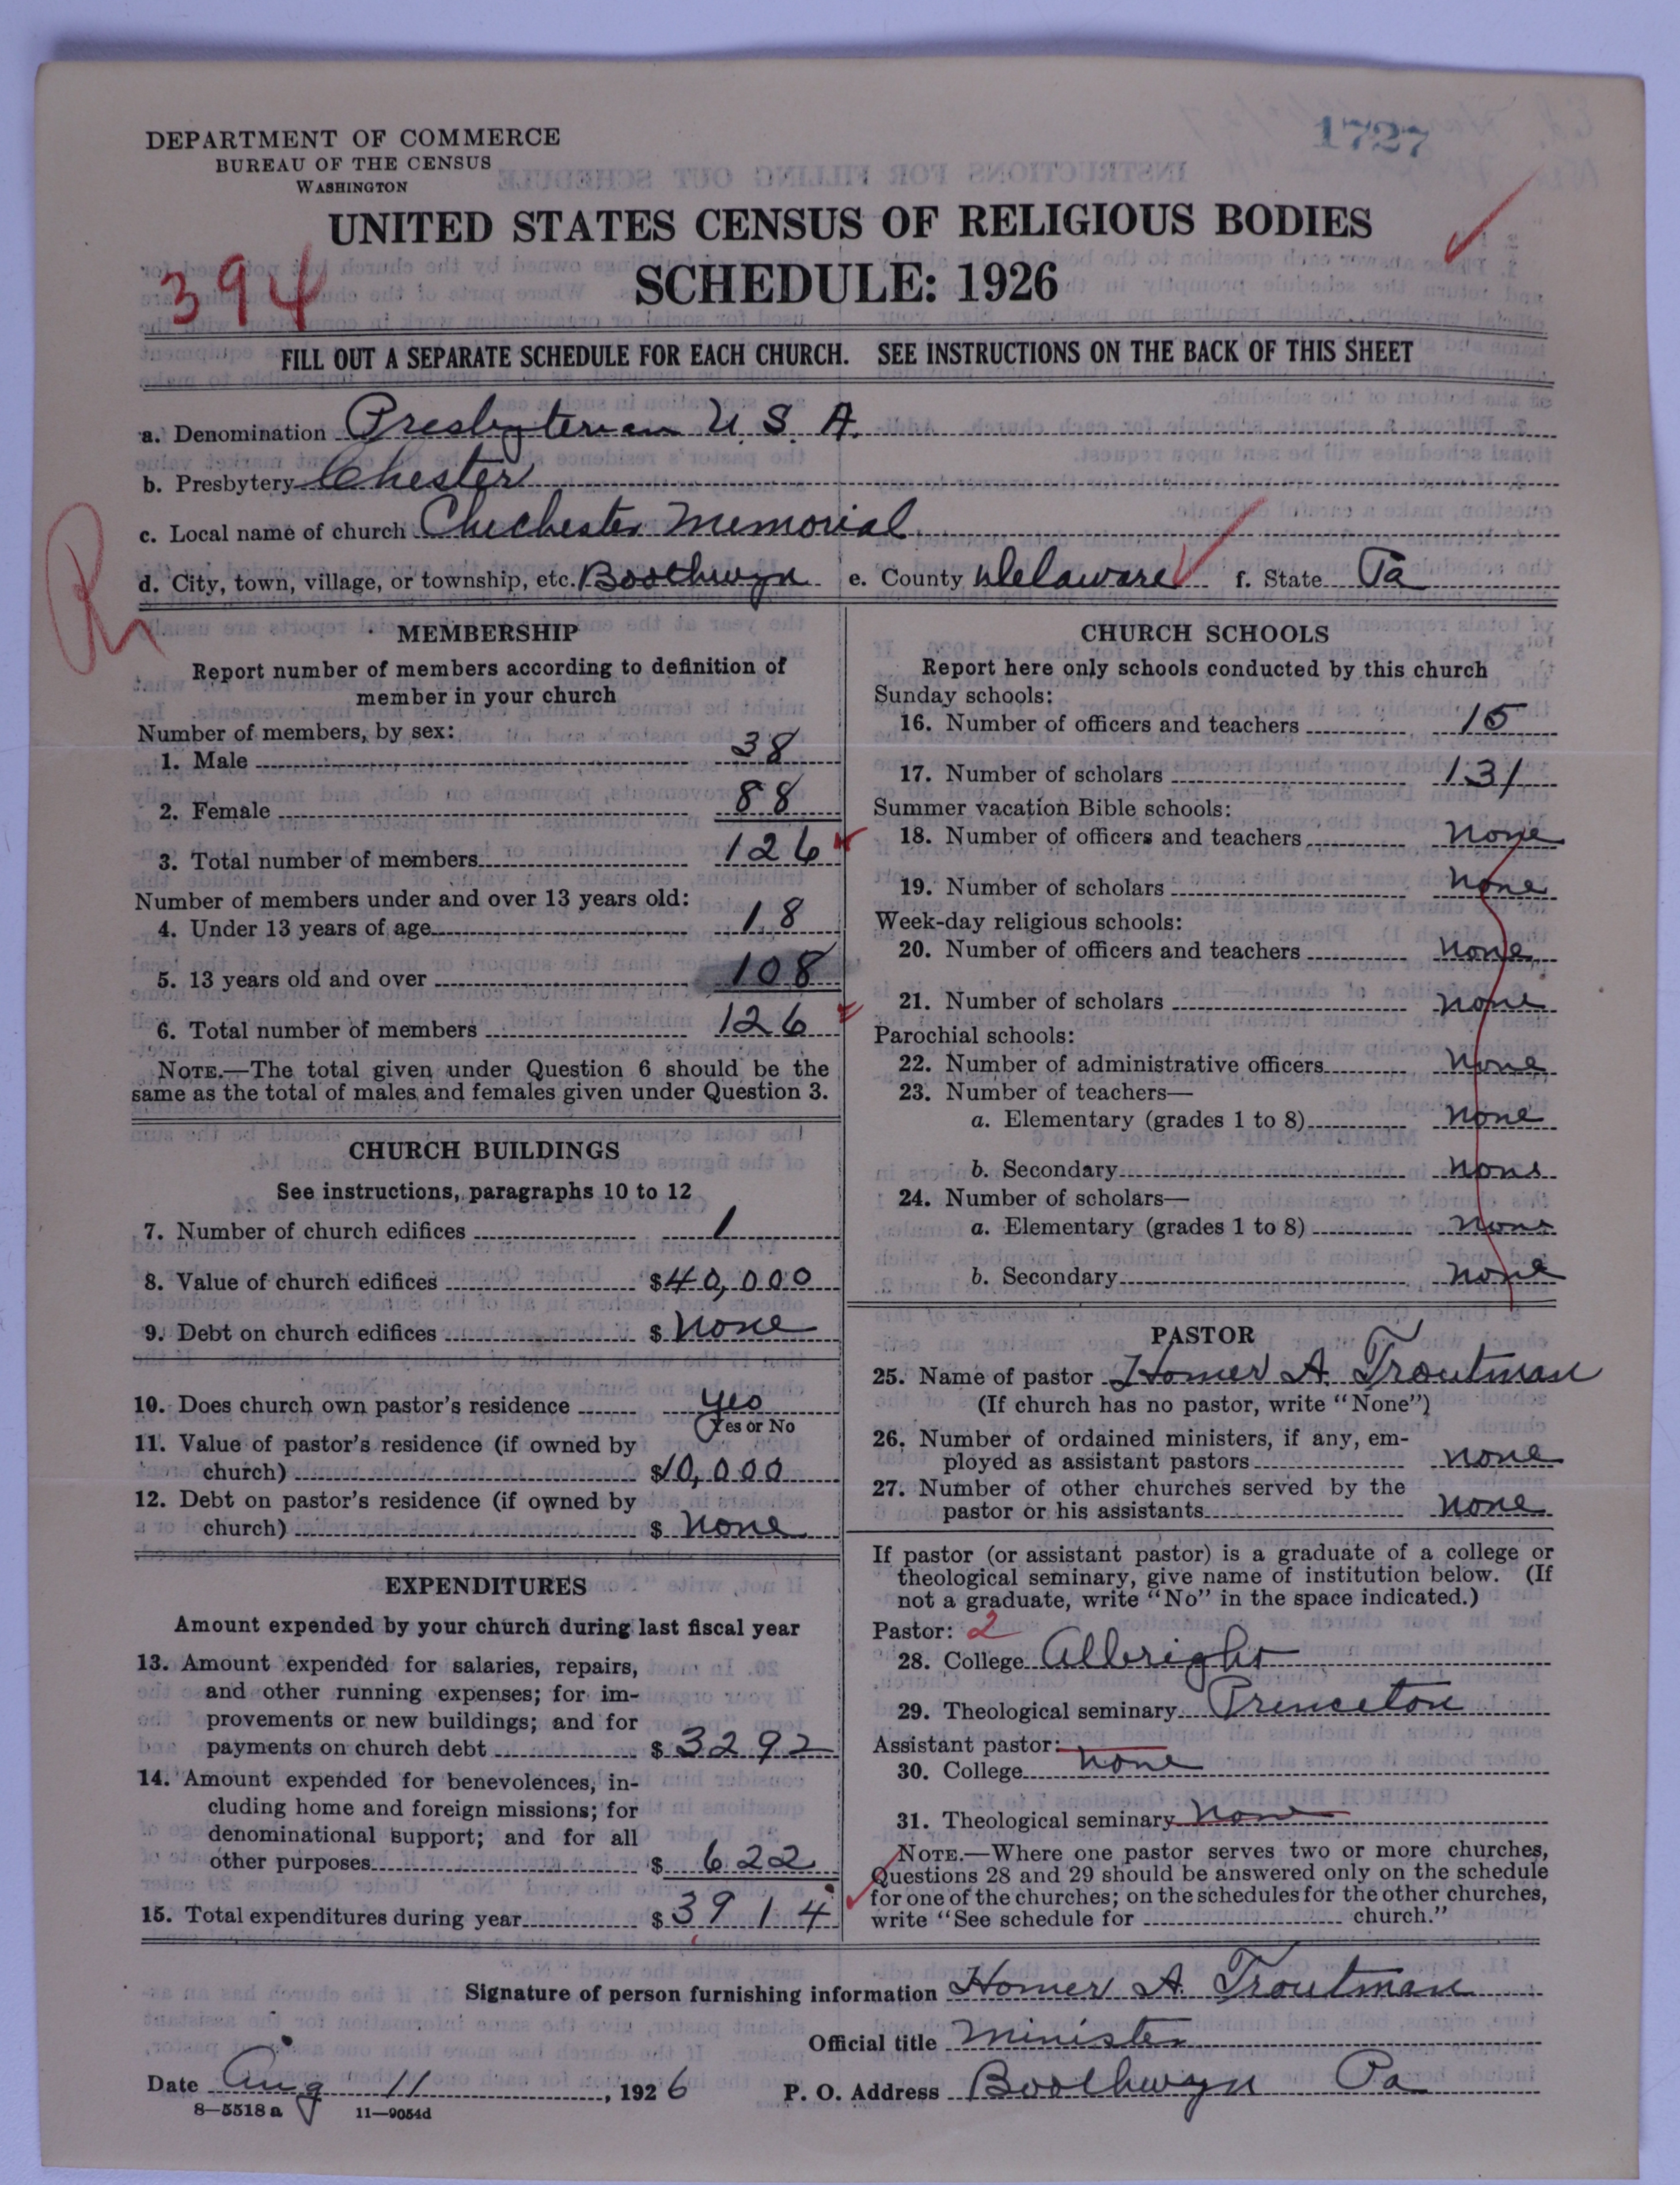 1727
DEPARTMENT OF COMMERCE
BUREAU OF THE CENSUS
WASHINGTON
UNITED STATES CENSUS OF RELIGIOUS BODIES
394
SCHEDULE: 1926
FILL OUT A SEPARATE SCHEDULE FOR EACH CHURCH. SEE INSTRUCTIONS ON THE BACK OF THIS SHEET
a. Denomination Presbyterian U. S. A.
b. Presbytery Chester
c. Local name of church Chichester Memorial
d. City, town, village, or township, etc. Boothwyn e. County Delaware f. State Pa
R
MEMBERSHIP
Report number of members according to definition of
member in your church
Number of members, by sex:
1. Male 38
2. Female 88
3. Total number of members 126
Number of members under and over 13 years old:
4. Under 13 years of age 18
5. 13 years old and over 108
6. Total number of members 126
NOTE.—The total given under Question 6 should be the
same as the total of males and females given under Question 3.
CHURCH BUILDINGS
See instructions, paragraphs 10 to 12
7. Number of church edifices 1
8. Value of church edifices $40,000
9. Debt on church edifices $ none
10. Does church own pastor's residence yes
Yes or No
11. Value of pastor's residence (if owned by
church) $10,000
12. Debt on pastor's residence (if owned by
church) $ none
EXPENDITURES
Amount expended by your church during last fiscal year
13. Amount expended for salaries, repairs,
and other running expenses; for im-
provements or new buildings; and for
payments on church debt $ 3292
14. Amount expended for benevolences, in-
cluding home and foreign missions; for
denominational support; and for all
other purposes $ 622
15. Total expenditures during year $ 3914
CHURCH SCHOOLS
Report here only schools conducted by this church
Sunday schools:
16. Number of officers and teachers 15
17. Number of scholars 131
Summer vacation Bible schools:
18. Number of officers and teachers none
19. Number of scholars none
Week-day religious schools:
20. Number of officers and teachers none
21. Number of scholars none
Parochial schools:
22. Number of administrative officers none
23. Number of teachers—
a. Elementary (grades 1 to 8) none
b. Secondary none
24. Number of scholars—
a. Elementary (grades 1 to 8) none
b. Secondary none
PASTOR
25. Name of pastor Homer A. Troutman
(If church has no pastor, write "None")
26. Number of ordained ministers, if any, em-
ployed as assistant pastors none
27. Number of other churches served by the
pastor or his assistants none
If pastor (or assistant pastor) is a graduate of a college or
theological seminary, give name of institution below. (If
not a graduate, write "No" in the space indicated.)
Pastor: 2
28. College Albright
29. Theological seminary Princeton
Assistant pastor:
30. College none
31. Theological seminary none
NOTE.—Where one pastor serves two or more churches,
Questions 28 and 29 should be answered only on the schedule
for one of the churches; on the schedules for the other churches,
write "See schedule for church."
Signature of person furnishing information Homer A. Troutman
Official title Minister
Date Aug 11, 1926 P. O. Address Boothwyn Pa
8—5518 a 11—9054d